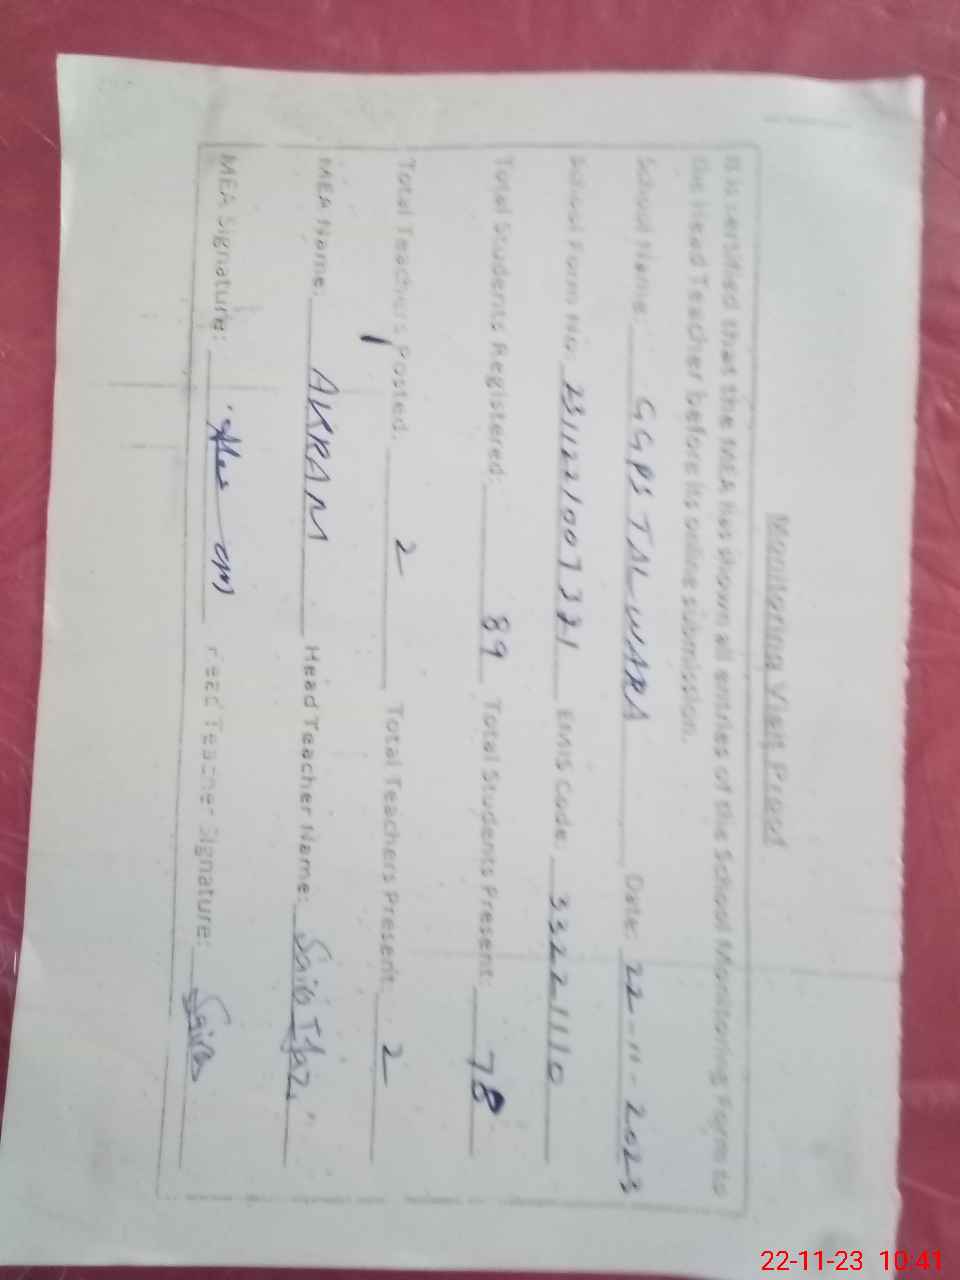 Monitoring Visit Proof
It is certified that the MEA has shown all entries of the School Monitoring Form to
the Head Teacher before its online submission.
School Name: GGPS TALWARA Date: 22-11-2023
School Form No: 2311221007321 EMIS Code: 33221110
Total Students Registered: 89 Total Students Present: 78
Total Teachers Posted: 2 Total Teachers Present: 2
MEA Name: AKRAM Head Teacher Name:
MEA Signature: Head Teacher Signature: Saira
22-11-23 10:41